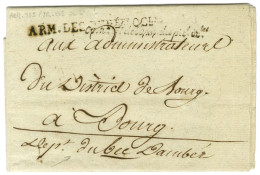 ARM. DES PYRÉN. OCC.
aux administrateurs
Du District de Bourg.
à Bourg
Dept. du bec Dambés